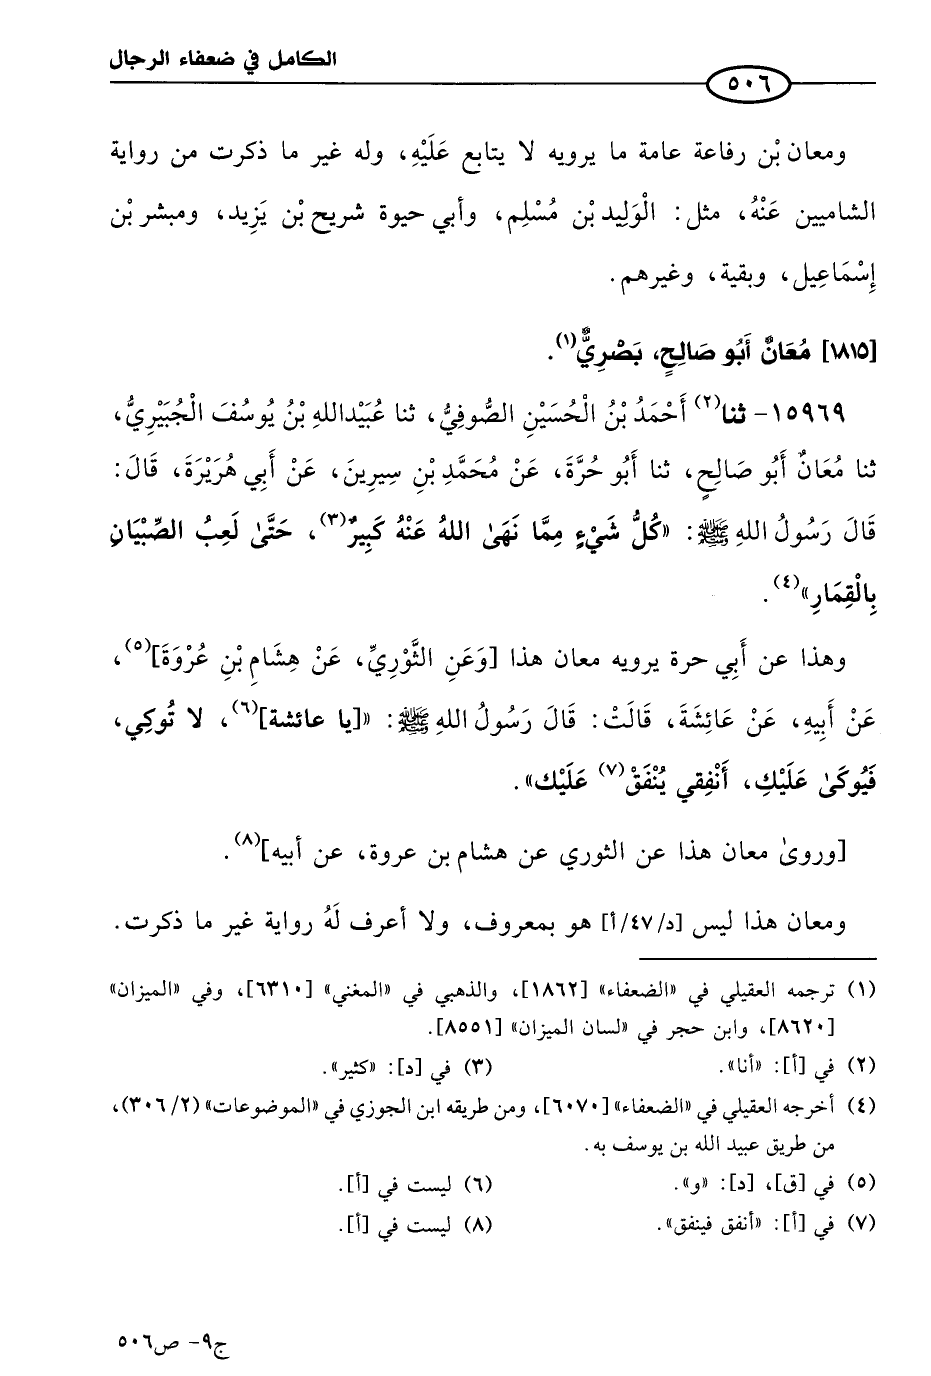 الكامل في ضعفاء الرجال
٥٠٦
ومعان بْن رفاعة عامة ما يرويه لا يتابع عَلَيْهِ، وله غير ما ذكرت من رواية
الشاميين عَنْهُ، مثل: الْوَلِيد بْن مُسْلِم، وأبي حيوة شريح بْن يَزِيد، ومبشر بْن
إِسْمَاعِيل، وبقية، وغيرهم.
[١٨١٥] مُعَانٌ أَبُو صَالِحٍ، بَصْرِيٌّ(١).
١٥٩٦٩- ثنا(٢) أَحْمَدُ بْنُ الْحُسَيْنِ الصُّوفِيُّ، ثنا عُبَيْدالله بْنُ يُوسُفَ الْجُبَيْرِيُّ،
ثنا مُعَانٌ أَبُو صَالِحٍ، ثنا أَبُو حُرَّةَ، عَنْ مُحَمَّدِ بْنِ سِيرِينَ، عَنْ أَبِي هُرَيْرَةَ، قَالَ:
قَالَ رَسُولُ اللهِ ﷺ: «كُلُّ شَيْءٍ مِمَّا نَهَىٰ اللهُ عَنْهُ كَبِيرٌ(٣)، حَتَّىٰ لَعِبُ الصِّبْيَانِ
بِالْقِمَارِ»(٤).
وهذا عن أَبِي حرة يرويه معان هذا [وَعَنِ الثَّوْرِيِّ، عَنْ هِشَامِ بْنِ عُرْوَةَ](٥)،
عَنْ أَبِيهِ، عَنْ عَائِشَةَ، قَالَتْ: قَالَ رَسُولُ اللهِ ﷺ: «[يا عائشة](٦)، لا تُوكِي،
فَيُوكَىٰ عَلَيْكِ، أَنْفِقي يُنْفَقْ(٧) عَلَيْك».
[وروىٰ معان هذا عن الثوري عن هشام بن عروة، عن أبيه](٨).
ومعان هذا ليس [د/٤٧/أ] هو بمعروف، ولا أعرف لَهُ رواية غير ما ذكرت.
(١) ترجمه العقيلي في «الضعفاء» [١٨٦٢]، والذهبي في «المغني» [٦٣١٠]، وفي «الميزان»
[٨٦٢٠]، وابن حجر في «لسان الميزان» [٨٥٥١].
(٢) في [أ]: «أنا». (٣) في [د]: «كثير».
(٤) أخرجه العقيلي في «الضعفاء» [٦٠٧٠]، ومن طريقه ابن الجوزي في «الموضوعات» (٢/ ٣٠٦)،
من طريق عبيد الله بن يوسف به.
(٥) في [ق]، [د]: «و». (٦) ليست في [أ].
(٧) في [أ]: «أنفق فينفق». (٨) ليست في [أ].
ج٩- ص٥٠٦